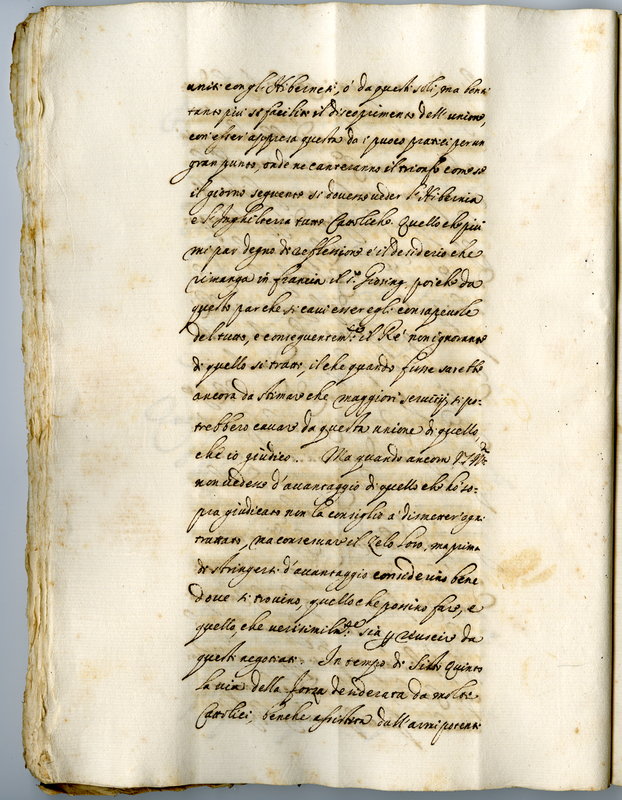 uniti con gl'Hibernesi, ó da questi soli, ma tanto
tanto più si facilita il discoprimento dell'unione,
con esser appresa questa da i puoco pratici per un
gran punto, onde ne canteranno il trionfo come se
il giorno seguente si dovesse veder l'Hibernia
e l'Inghilterra tutte Cattoliche. Quello che più
mi par degno di reflessione é il desiderio che
rimanga in francia il s.r Giering, poiche da
questo par che si cavi esser egli consapevole
del tutto, e conseguentem.te il Ré non ignorante
di quello si tratta, il che quando fusse sarebbe
ancora da stimare che maggiori servitij si po-
trebbero cavar da questa unione di quello,
che io giudico. Ma quando ancora
non vedesse d'avantaggio di quello che hó so-
pra giudicato non la consiglio á dismetter ogni
trattato, ma conservar il Zelo loro, ma prima
di stringersi d'avantaggio considerino bene
dove si trovino, quello che possino fare, e
quello, che verisimilm.te sia per riuscire da
questi negotiati. In tempo di Sisto Quinto
la via della forza desiderata da molti
Cattolici, benche assistita dall'armi potenti